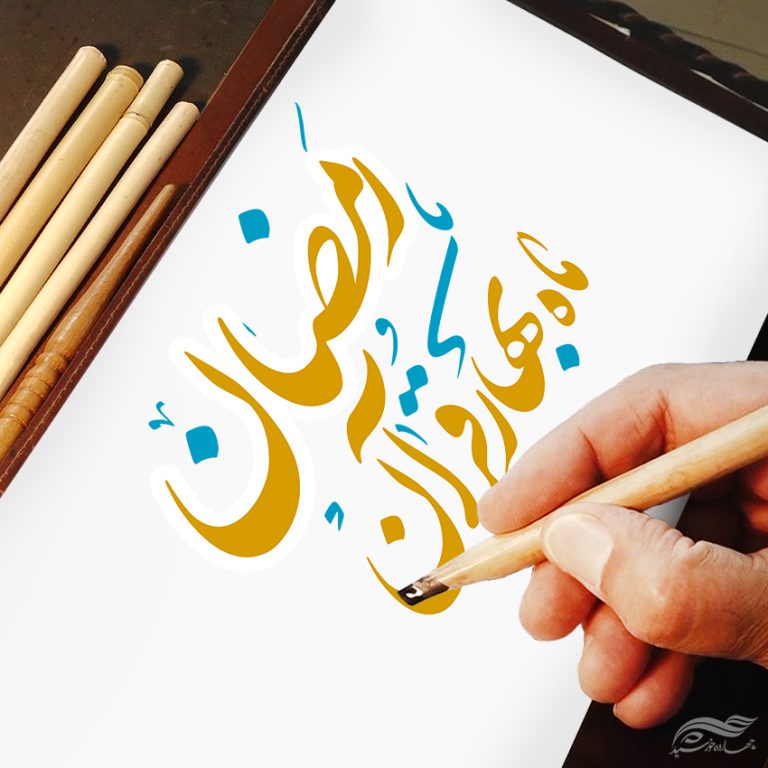 رمضان
ماه بهار قرآن
چهارده خورشید